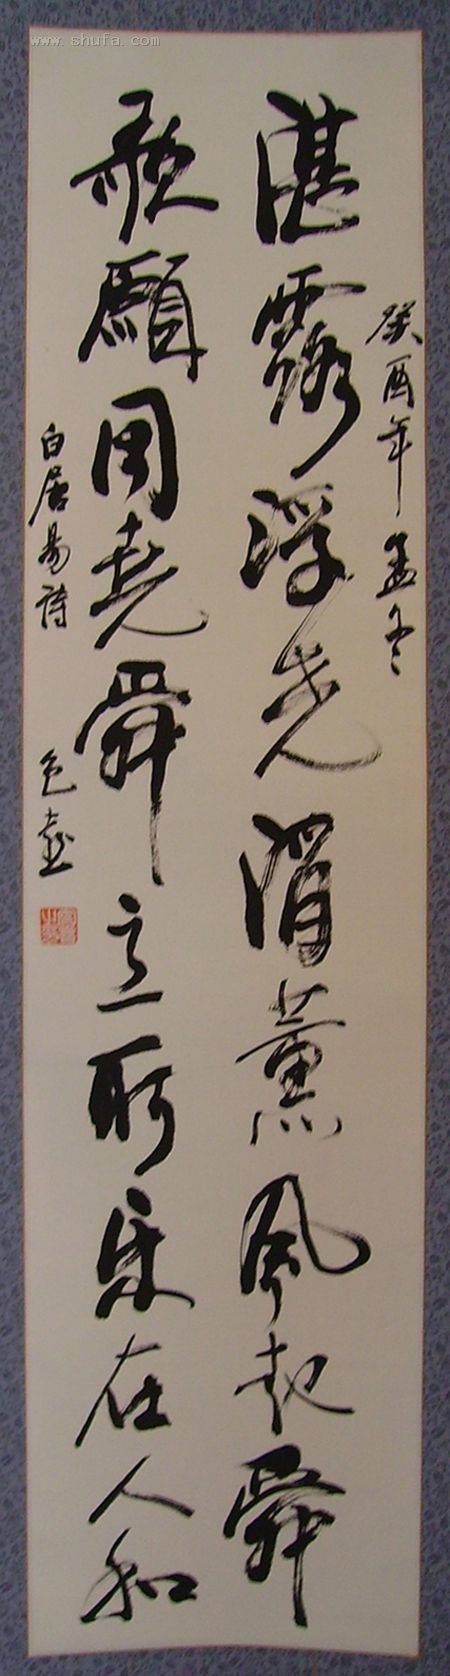 癸酉年孟冬
湛露浮尧酒薰风起舜
歌愿同尧舜意所乐在人和
白居易诗
www.shufa.com